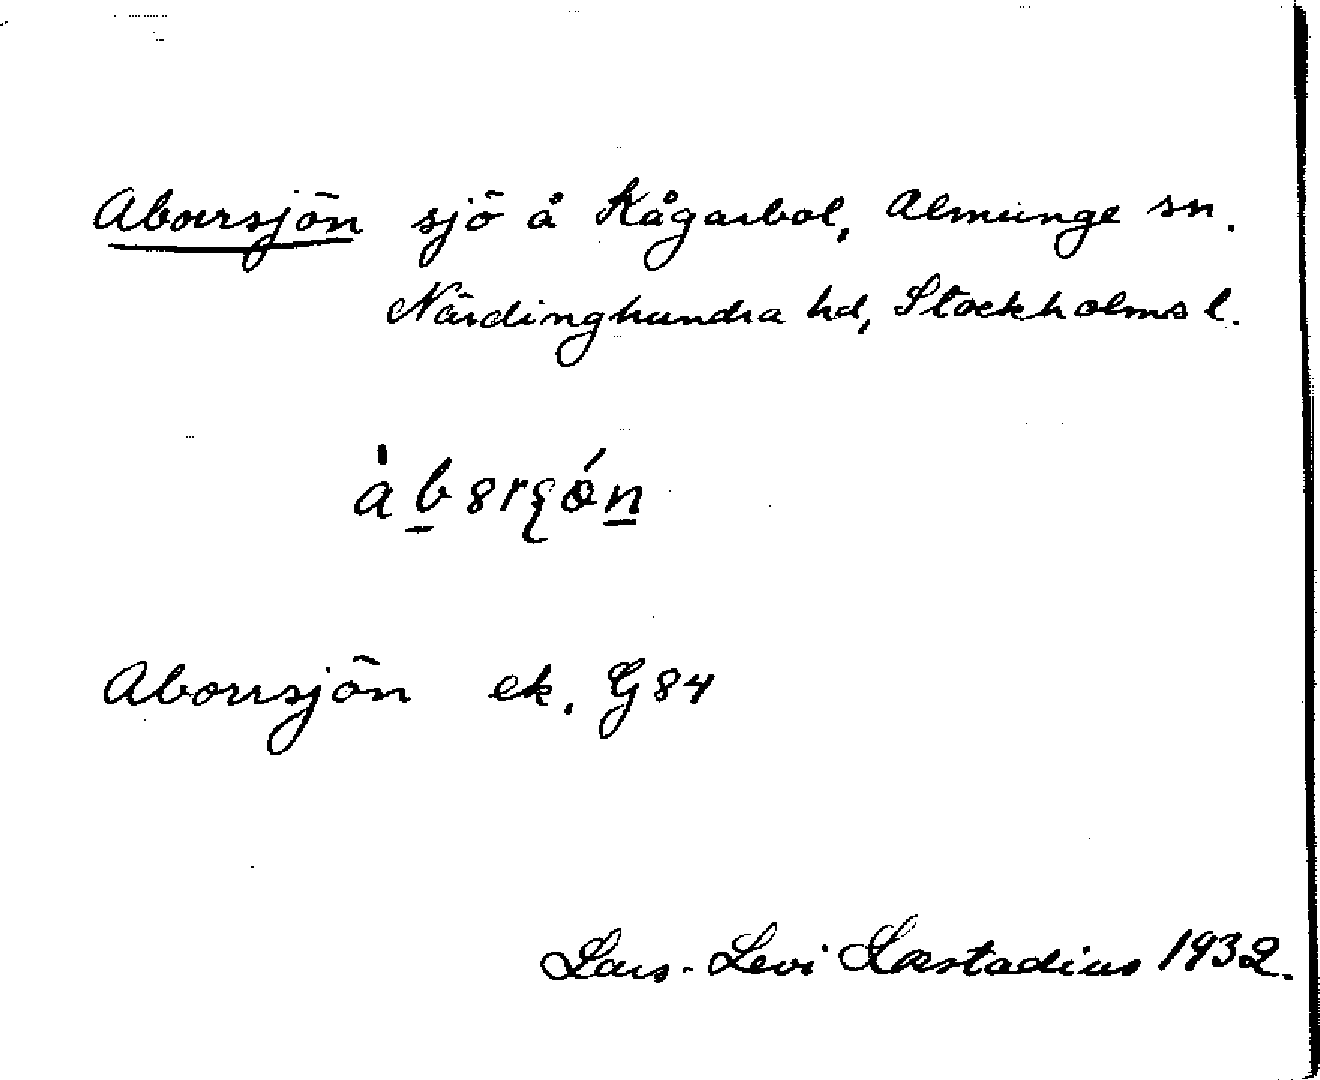 Aborrsjön sjö å Kågarbol, Almunge sn.
Närdinghundra hd, Stockholms l.
Aborrsjön ek. G 84
Lars-Levi Læstadius 1932.